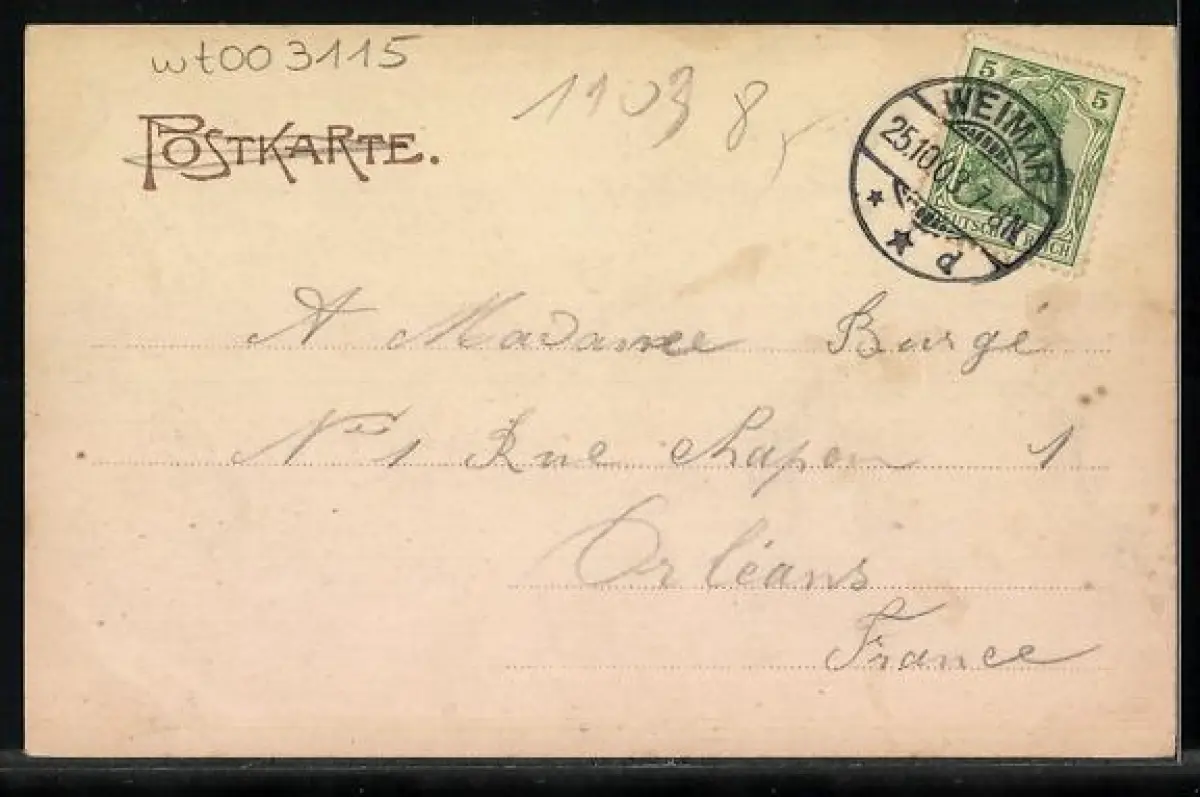 wt003115
1903 8
POSTKARTE.
5 5
DEUTSCHES REICH
WEIMAR
25.10.03. 7-8N.
P
A Madame Burgé
1 Rue Chapon 1
Orléans
France